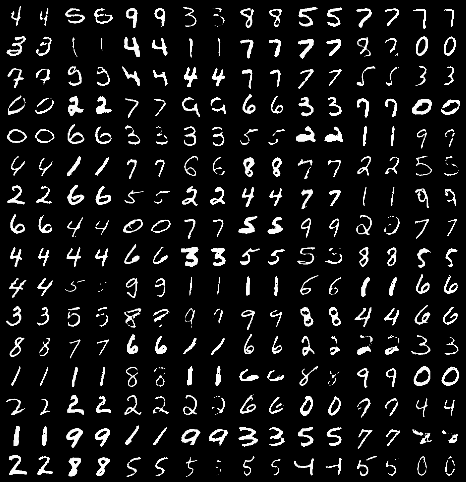 4 4 5 5 9 9 3 3 8 8 5 5 7 7 7 7
3 3 1 1 4 4 1 1 7 7 7 7 8 2 0 0
7 7 9 9 4 4 4 4 7 7 7 7 5 5 3 3
0 0 2 2 7 7 9 9 6 6 3 3 7 7 0 0
0 0 6 6 3 3 3 3 5 5 2 2 1 1 9 9
4 4 1 1 7 7 6 6 8 8 7 7 2 2 5 5
2 2 6 6 5 5 2 2 4 4 7 7 1 1 9 9
6 6 4 4 0 0 7 7 5 5 9 9 2 2 7 7
4 4 4 4 6 6 3 3 5 5 5 5 8 8 5 5
4 4 5 9 9 1 1 1 1 6 6 1 1 6 6
3 3 5 5 8 9 9 9 9 8 8 4 4 6 6
8 8 7 7 6 6 1 1 6 6 2 2 2 2 3 3
1 1 1 1 8 8 1 1 6 6 8 8 9 9 0 0
2 2 2 2 2 2 2 2 6 6 0 0 9 9 4 4
1 1 9 9 1 1 9 9 3 3 5 5 7 7
2 2 8 8 5 5 5 5 5 5 4 4 5 5 0 0